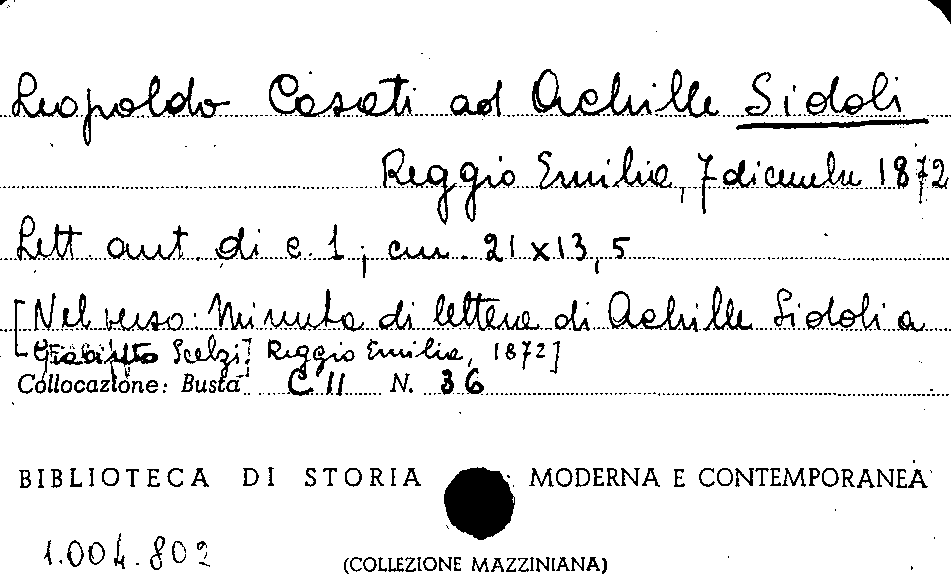 Leopoldo Casati ad Achille Sidoli
Reggio Emilia, 7 dicembre 1872
Lett. aut. di c. 1; cm. 21x13,5
[Nel verso: Minuta di lettera di Achille Sidoli a
Scelzi] Reggio Emilia, 1872]
Collocazione: Busta C II N. 36
BIBLIOTECA DI STORIA MODERNA E CONTEMPORANEA
1.004.802
(COLLEZIONE MAZZINIANA)